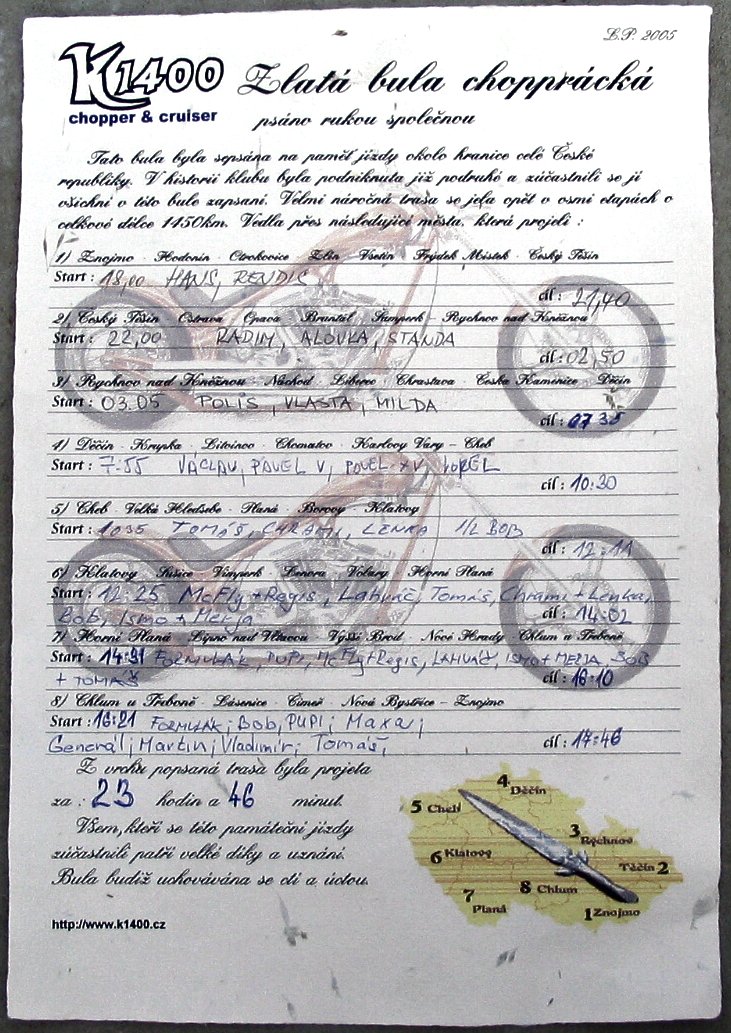 L.P. 2005
K1400
chopper & cruiser
Zlatá bula chopprácká
psáno rukou společnou
Tato bula byla sepsána na paměť jízdy okolo hranice celé České
republiky. V historii klubu byla podniknuta již podruhé a zúčastnili se jí
všichni v této bule zapsaní. Velmi náročná trasa se jela opět v osmi etapách o
celkové délce 1450km. Vedla přes následující města, která projeli :
1) Znojmo - Hodonín - Otrokovice - Zlín - Vsetín - Frýdek Místek - Český Těšín
Start : 18,00 HANS, RENDIS
cíl : 21,40
2) Český Těšín - Ostrava - Opava - Bruntál - Šumperk - Rychnov nad Kněžnou
Start : 22,00 RADIM, ALOVKA, STANDA
cíl : 02,50
3) Rychnov nad Kněžnou - Náchod - Liberec - Chrastava - Česká Kamenice - Děčín
Start : 03.05 POLIS, VLASTA, MILDA
cíl : 07 35
4) Děčín - Krupka - Litvínov - Chomutov - Karlovy Vary - Cheb
Start : 7.55 VÁCLAV, PAVEL V,
cíl : 10:30
5) Cheb - Velká Hleďsebe - Planá - Borovy - Klatovy
Start : 1035 TOMÁŠ, CHRAMI, LENKA 1/2 BOB
cíl : 12:11
6) Klatovy - Sušice - Vimperk - Lenora - Volary - Horní Planá
Start : 12:25 McFly + Regis, Lahváč, Tomáš, Chrami + Lenka,
Bob, Ismo + Medja
cíl : 14:02
7) Horní Planá - Lipno nad Vltavou - Vyšší Brod - Nové Hrady - Chlum u Třeboně
Start : 14:31 FORMULÁK, PUPI, McFly+Regis, LAHVÁČ, ISMO+MEDJA, BOB
+ TOMÁŠ
cíl : 16:10
8) Chlum u Třeboně - Lásenice - Číměř - Nová Bystřice - Znojmo
Start : 16:21 FORMULÁK; Bob, PUPI; Maxa;
Generál; Martin; Vladimír; Tomáš,
cíl : 17:46
Z vrchu popsaná trasa byla projeta
za : 23 hodin a 46 minut.
Všem, kteří se této památeční jízdy
zúčastnili patří velké díky a uznání.
Bula budiž uchovávána se ctí a úctou.
4 Děčín
5 Cheb
3 Rychnov
6 Klatovy
Těčín 2
8 Chlum
7 Planá
1 Znojmo
http://www.k1400.cz